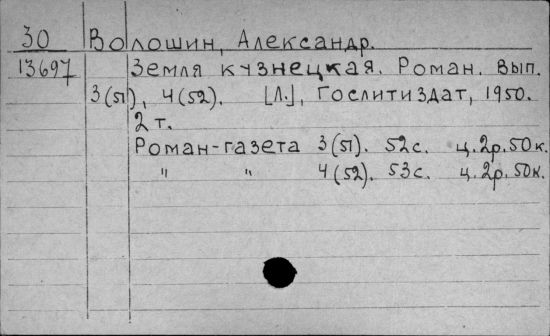 30 Волошин, Александр.
13697 Земля кузнецкая. Роман. Вып.
3(51), 4(52). [Л.], Гослитиздат, 1950.
2 т.
Роман-газета 3(51). 52с. ц.2р.50к.
" " 4(52). 53с. ц.2р.50к.